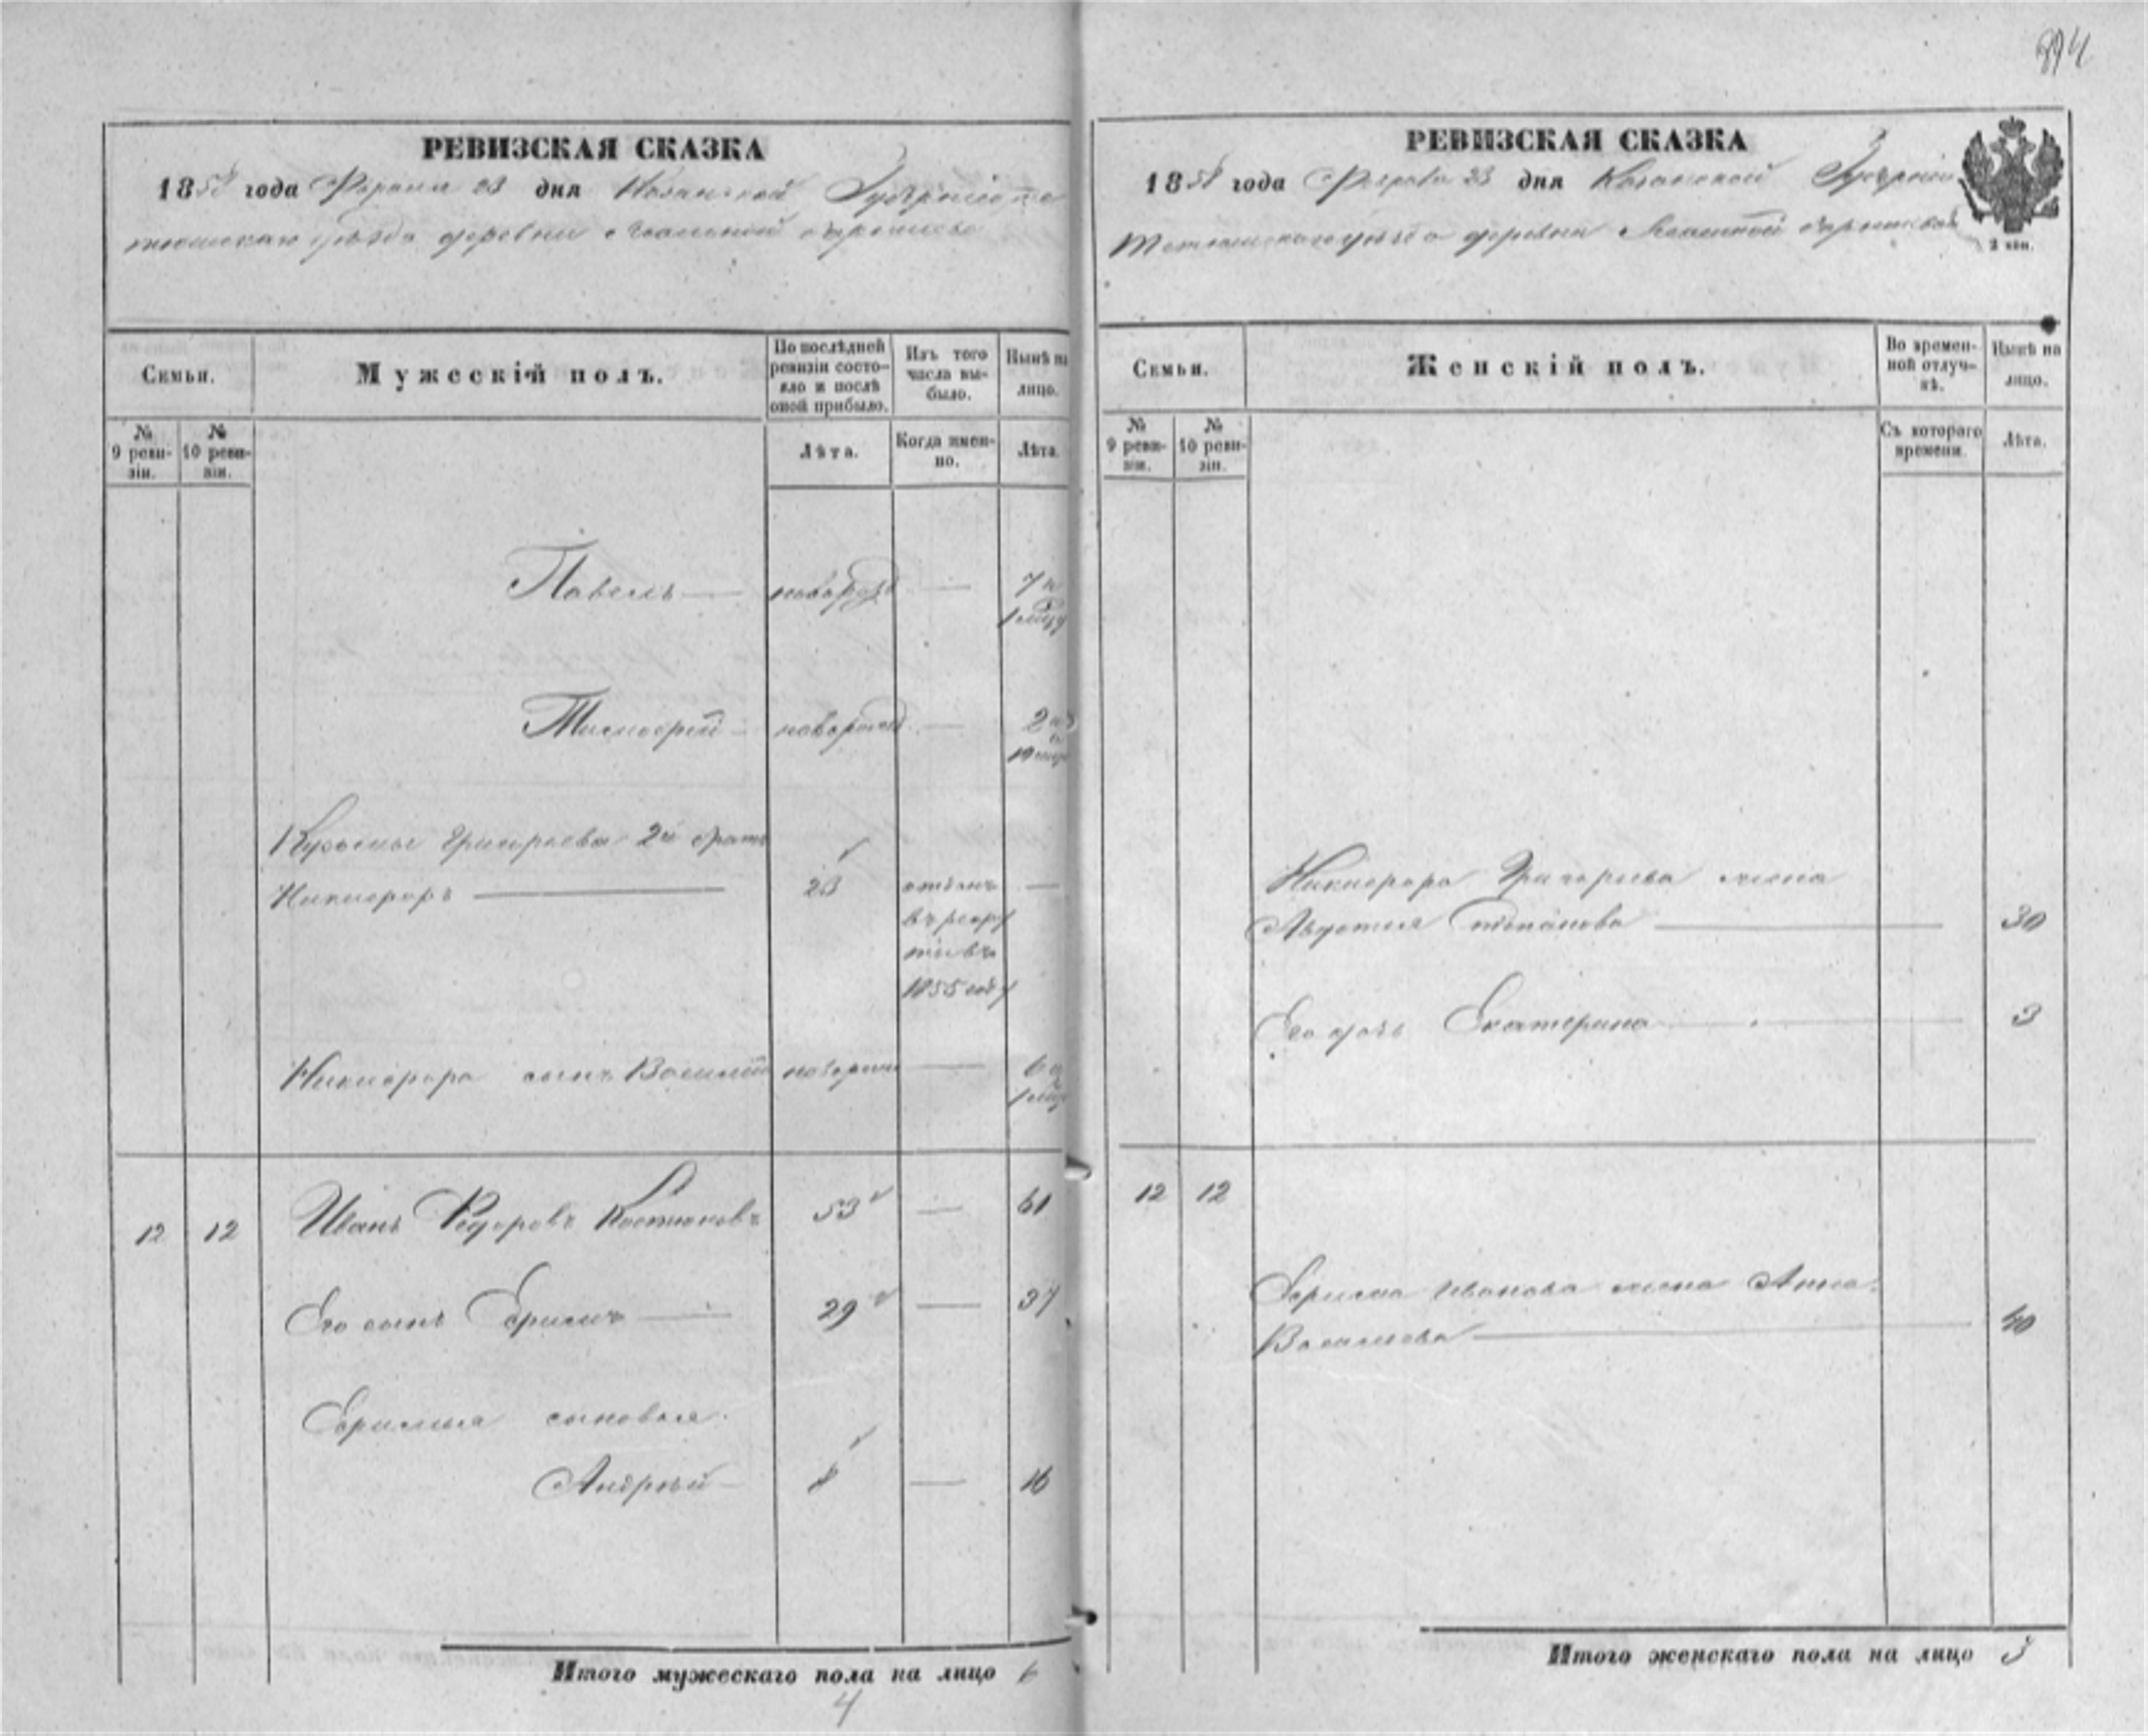 894
РЕВИЗСКАЯ СКАЗКА
1858 года Февраля 23 дня Казанской Губернии Те
тюшскаго уѣзда деревни
Семьи.
Мужескій полъ.
По послѣдней ревизіи состояло и послѣ оной прибыло.
Изъ того числа выбыло.
Нынѣ на лицо.
№ 9 ревизіи.
№ 10 ревизіи.
Лѣта.
Когда именно.
Лѣта.
Павелъ — новорожд — 7 и
1 мцу
Тимофей — новорожд —
Кузьмы Григорьева 2й братъ
Никифоръ — 23 отданъ —
въ рекру
ты въ
1855 году
Никифора сынъ Василій новорож — 6 и
1 мцу
12 12 Иванъ Федоровъ Костюковъ 53 — 61
Его сынъ Ефимъ — 29 — 37
Ефима сыновья
Андрей — 8 — 16
Итого мужескаго пола на лицо 6
4
РЕВИЗСКАЯ СКАЗКА
1858 года Февраля 23 дня Казанской Губерніи
Тетюшскаго уѣзда деревни
2 коп.
Семьи.
Женскій полъ.
Во временной отлучкѣ.
Нынѣ на лицо.
№ 9 ревизіи.
№ 10 ревизіи.
Съ котораго времени.
Лѣта.
Никифора Григорьева жена
Авдотья Степанова — 30
Его дочь Екатерина — 3
12 12
Ефима Иванова жена Анна
Васильева — 40
Итого женскаго пола на лицо 3